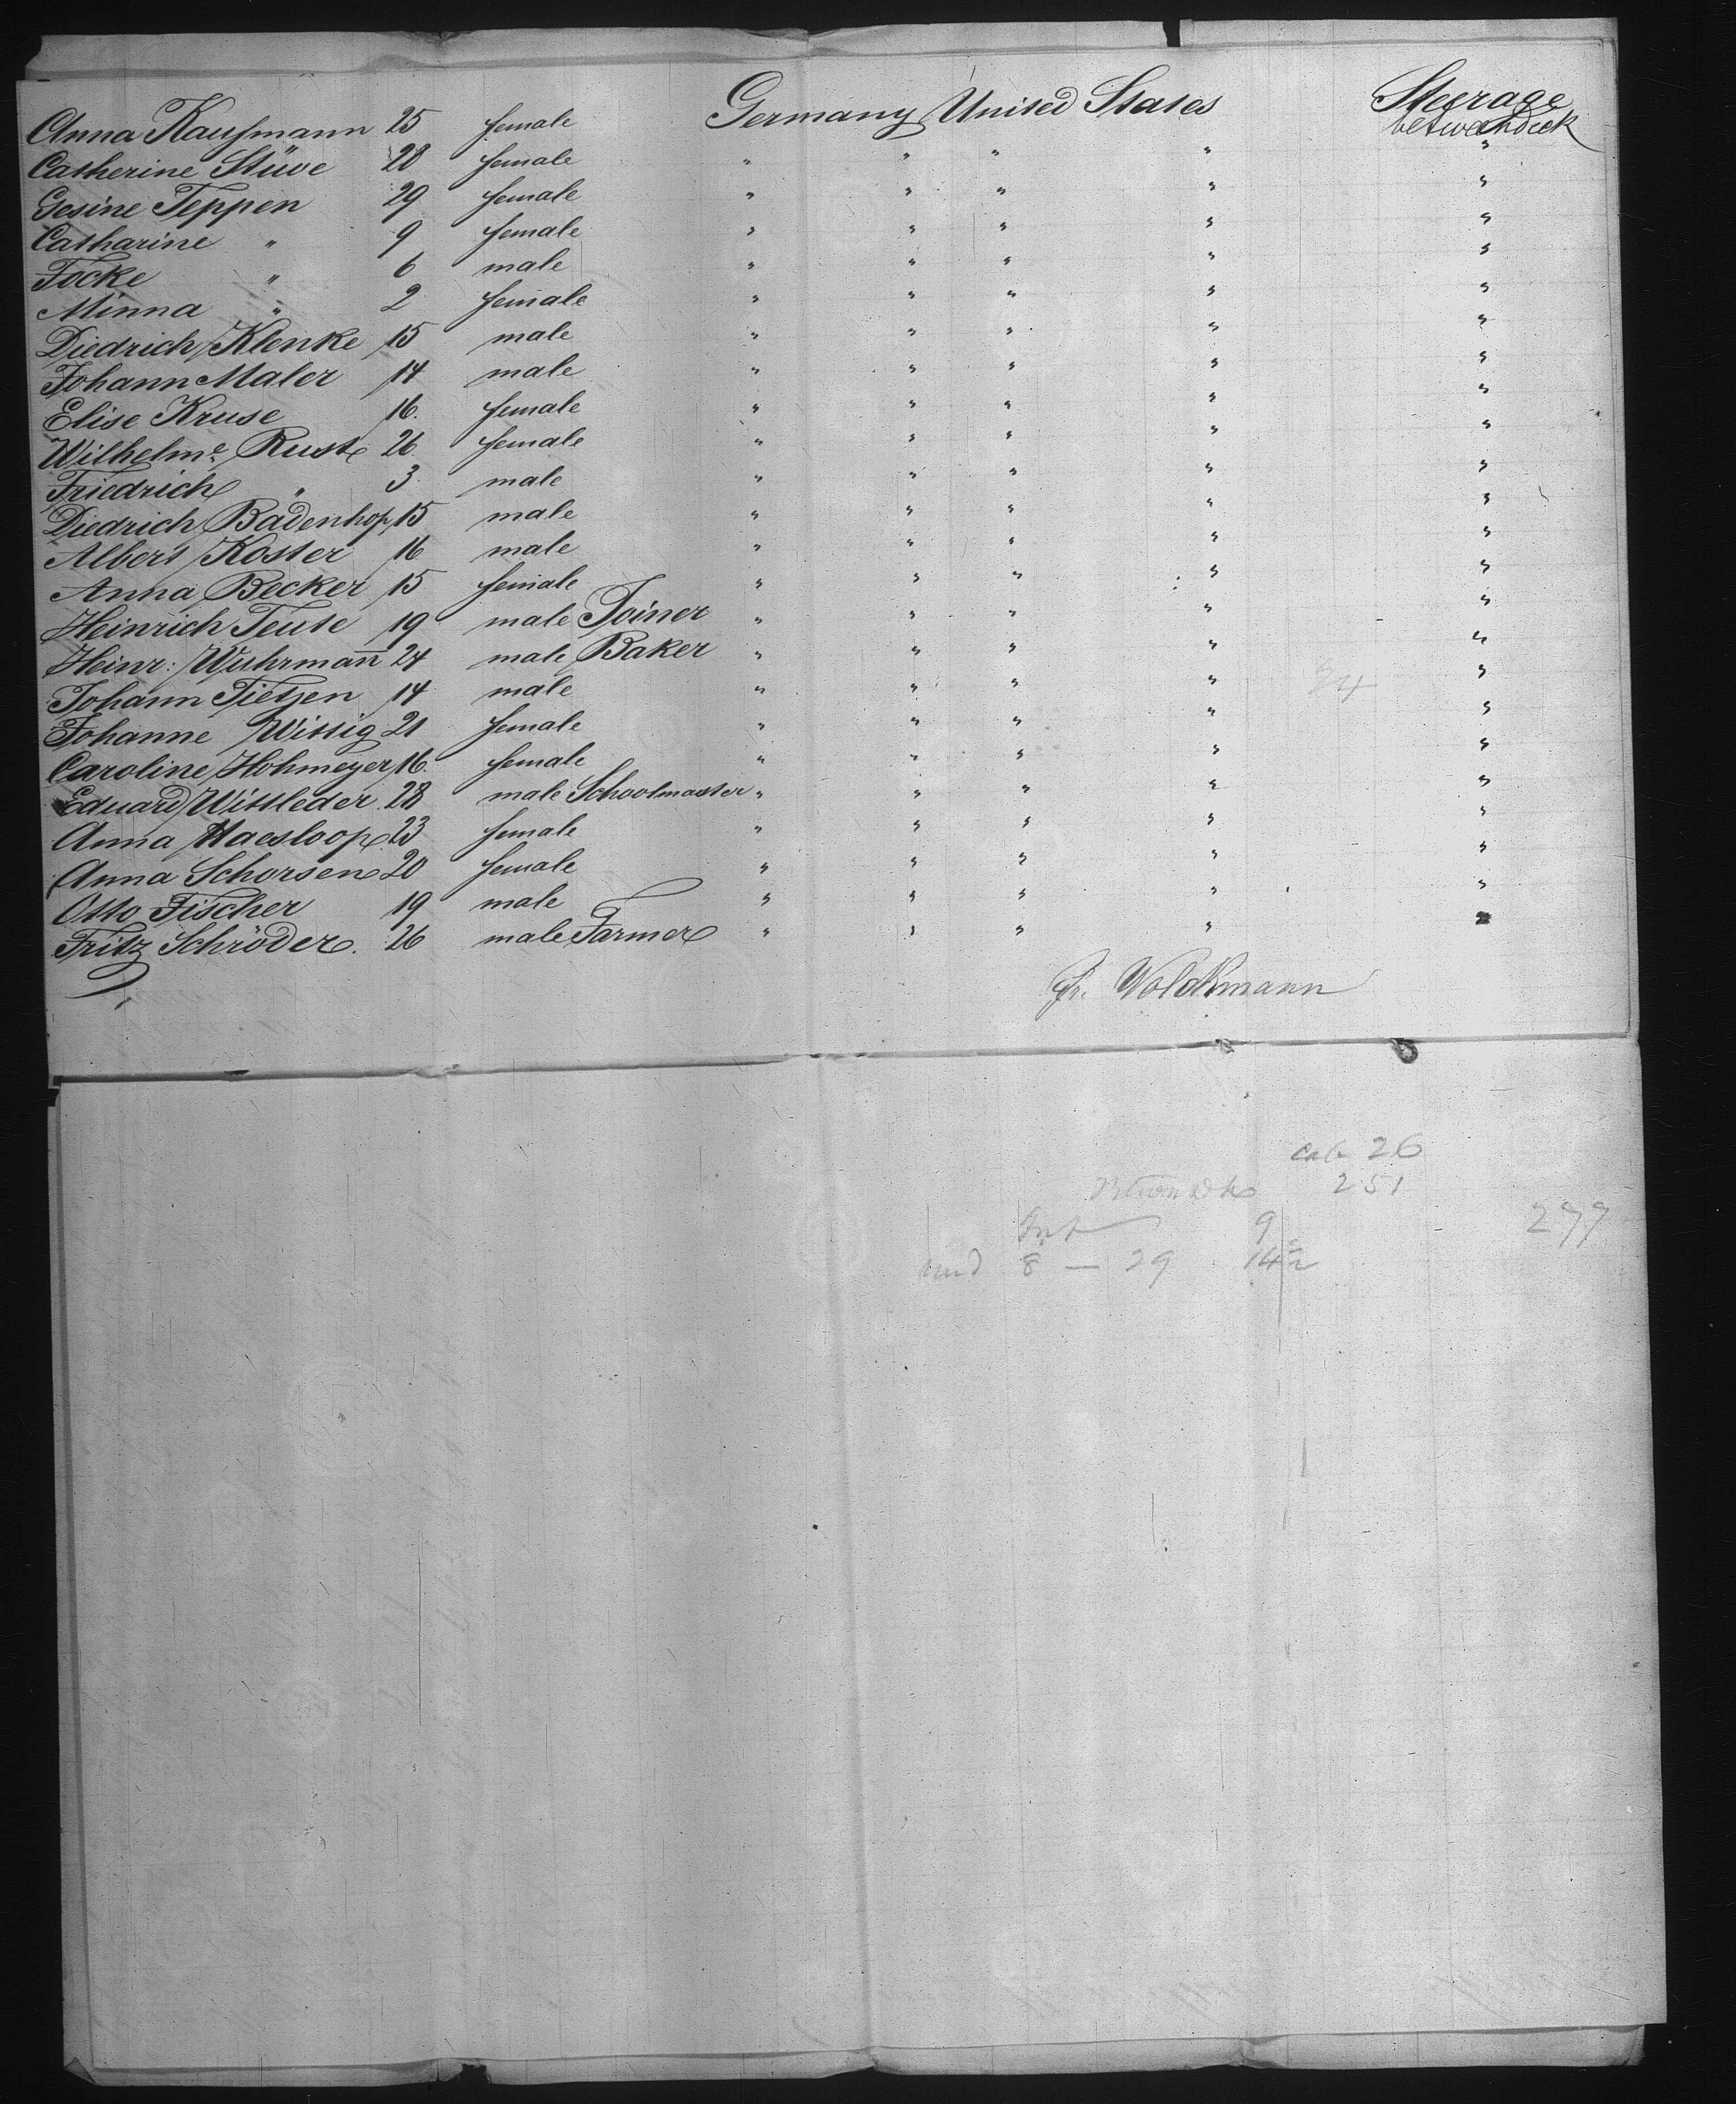 Anna Kaufmann 25 female Germany United States Steerage
betweendeck
Catherine Stüve 20 female " " " " "
Gesine Teppen 29 female " " " " "
Catharine " 9 female " " " " "
Focke " 6 male " " " " "
Minna " 2 female " " " " "
Diedrich Klenke 15 male " " " " "
Johann Maler 14 male " " " " "
Elise Kruse 16. female " " " " "
Wilhelme. Rust 26 female " " " " "
Friedrich " 3 male " " " " "
Diedrich Badenhop 15 male " " " " "
Albert Koster 16 male " " " " "
Anna Becker 15 female " " " " "
Heinrich Teute 19 male Joiner " " " " "
Heinr: Wuhrmañ 24 male Baker " " " " "
Johann Tietjen 14 male " " " " 24 "
Johanne Wittig 21 female " " " " "
Caroline Hohmeyer 16. female " " " " "
Eduard Wittleder 28 male Schoolmaster " " " " "
Anna Haesloop 23 female " " " " "
Anna Schorsen 20 female " " " " "
Otto Fischer 19 male " " " " "
Fritz Schröder. 26 male Farmer " " " " "
Fr. Woldkmann
Cab 26
251
9 277
8 — 29 14